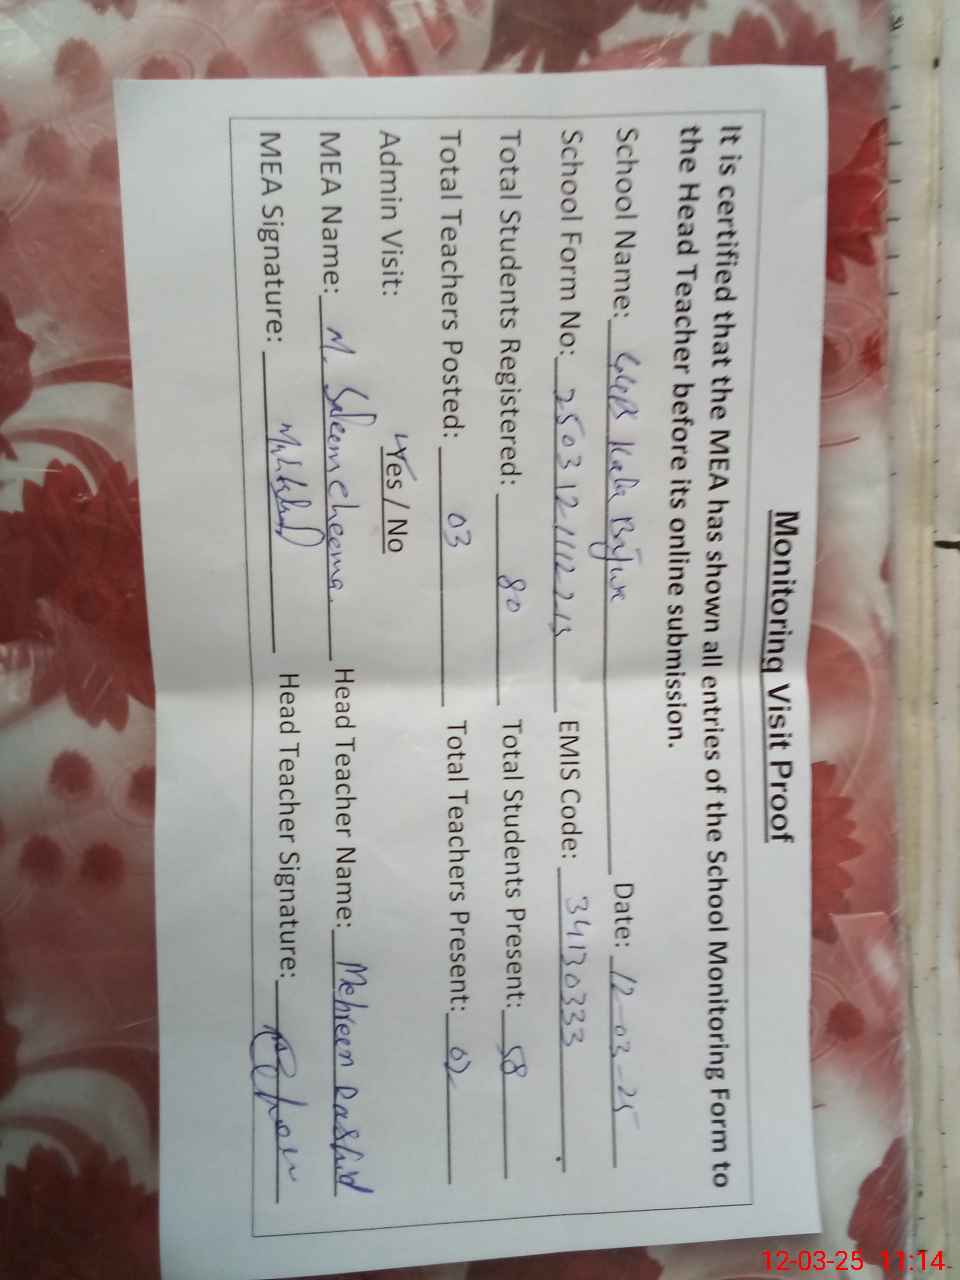 Monitoring Visit Proof
It is certified that the MEA has shown all entries of the School Monitoring Form to
the Head Teacher before its online submission.
School Name: Kala Date: 12-03-25
School Form No: EMIS Code: 34130333
Total Students Registered: 80 Total Students Present: 58
Total Teachers Posted: 03 Total Teachers Present: 02
Admin Visit: Yes / No
MEA Name: M. Saleem cheema. Head Teacher Name: Mehreen Rashid
MEA Signature: Head Teacher Signature:
12-03-25 11:14